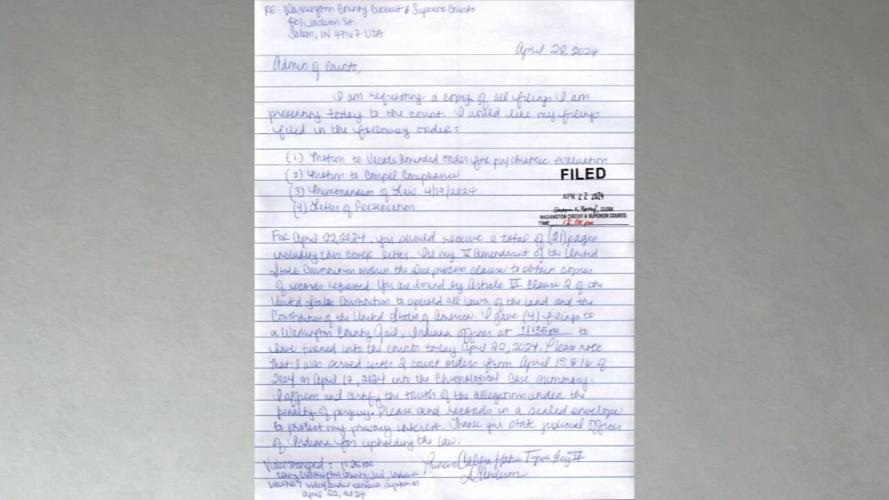 RE: Washington County Circuit & Superior Courts
801 Jackson St.
Salem, IN 47167 USA
April 22, 2024
Admin of Courts,
I am requesting a copy of all filings I am
presenting today to the court. I would like my filings
filed in the following order:
(1) Motion to Vacate Amended order for psychiatric evaluation
(2) Motion to Compel Compliance
(3) Memorandum of Law 4/19/2024
(4) Letter of Preservation
FILED
APR 22 2024
CLERK
WASHINGTON CIRCUIT & SUPERIOR COURTS
TIME
For April 22, 2024, you should receive a total of (21) pages
including this cover letter. It's my V Amendment of the United
State Constitution within the Due process clause to obtain copies
of records requested. You are bound by Article VI Clause 2 of the
United States Constitution to uphold all laws of the land and the
Constitution of the United States of America. I gave (4) filings to
a Washington County Jail, Indiana officer at 11:35am to
have turned into the courts today April 22, 2024. Please note
that I was served with 2 court orders from April 15 & 16 of
2024 on April 17, 2024 into the Chronological Case Summary.
I affirm and certify the truth of the allegations under the
penalty of perjury. Please send records in a sealed envelope
to protect my privacy interest. Thank you state judicial officers
of Indiana for upholding the law.
Video stamped: 11:35am
Washington County Jail, Indiana
video camera system on
April 22, 2024
Anderson